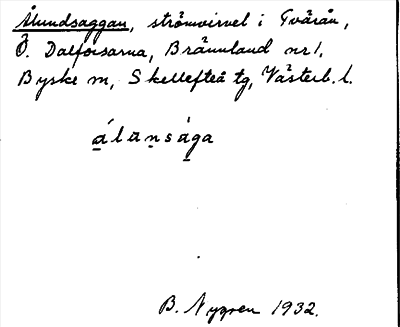 Ålundsaggan, strömvirvel i Tvärån,
Ö. Dalforsarna, Brännland nr 1,
Byske sn, Skellefteå tg, Västerb. l.
álansága
B. Nygren 1932.